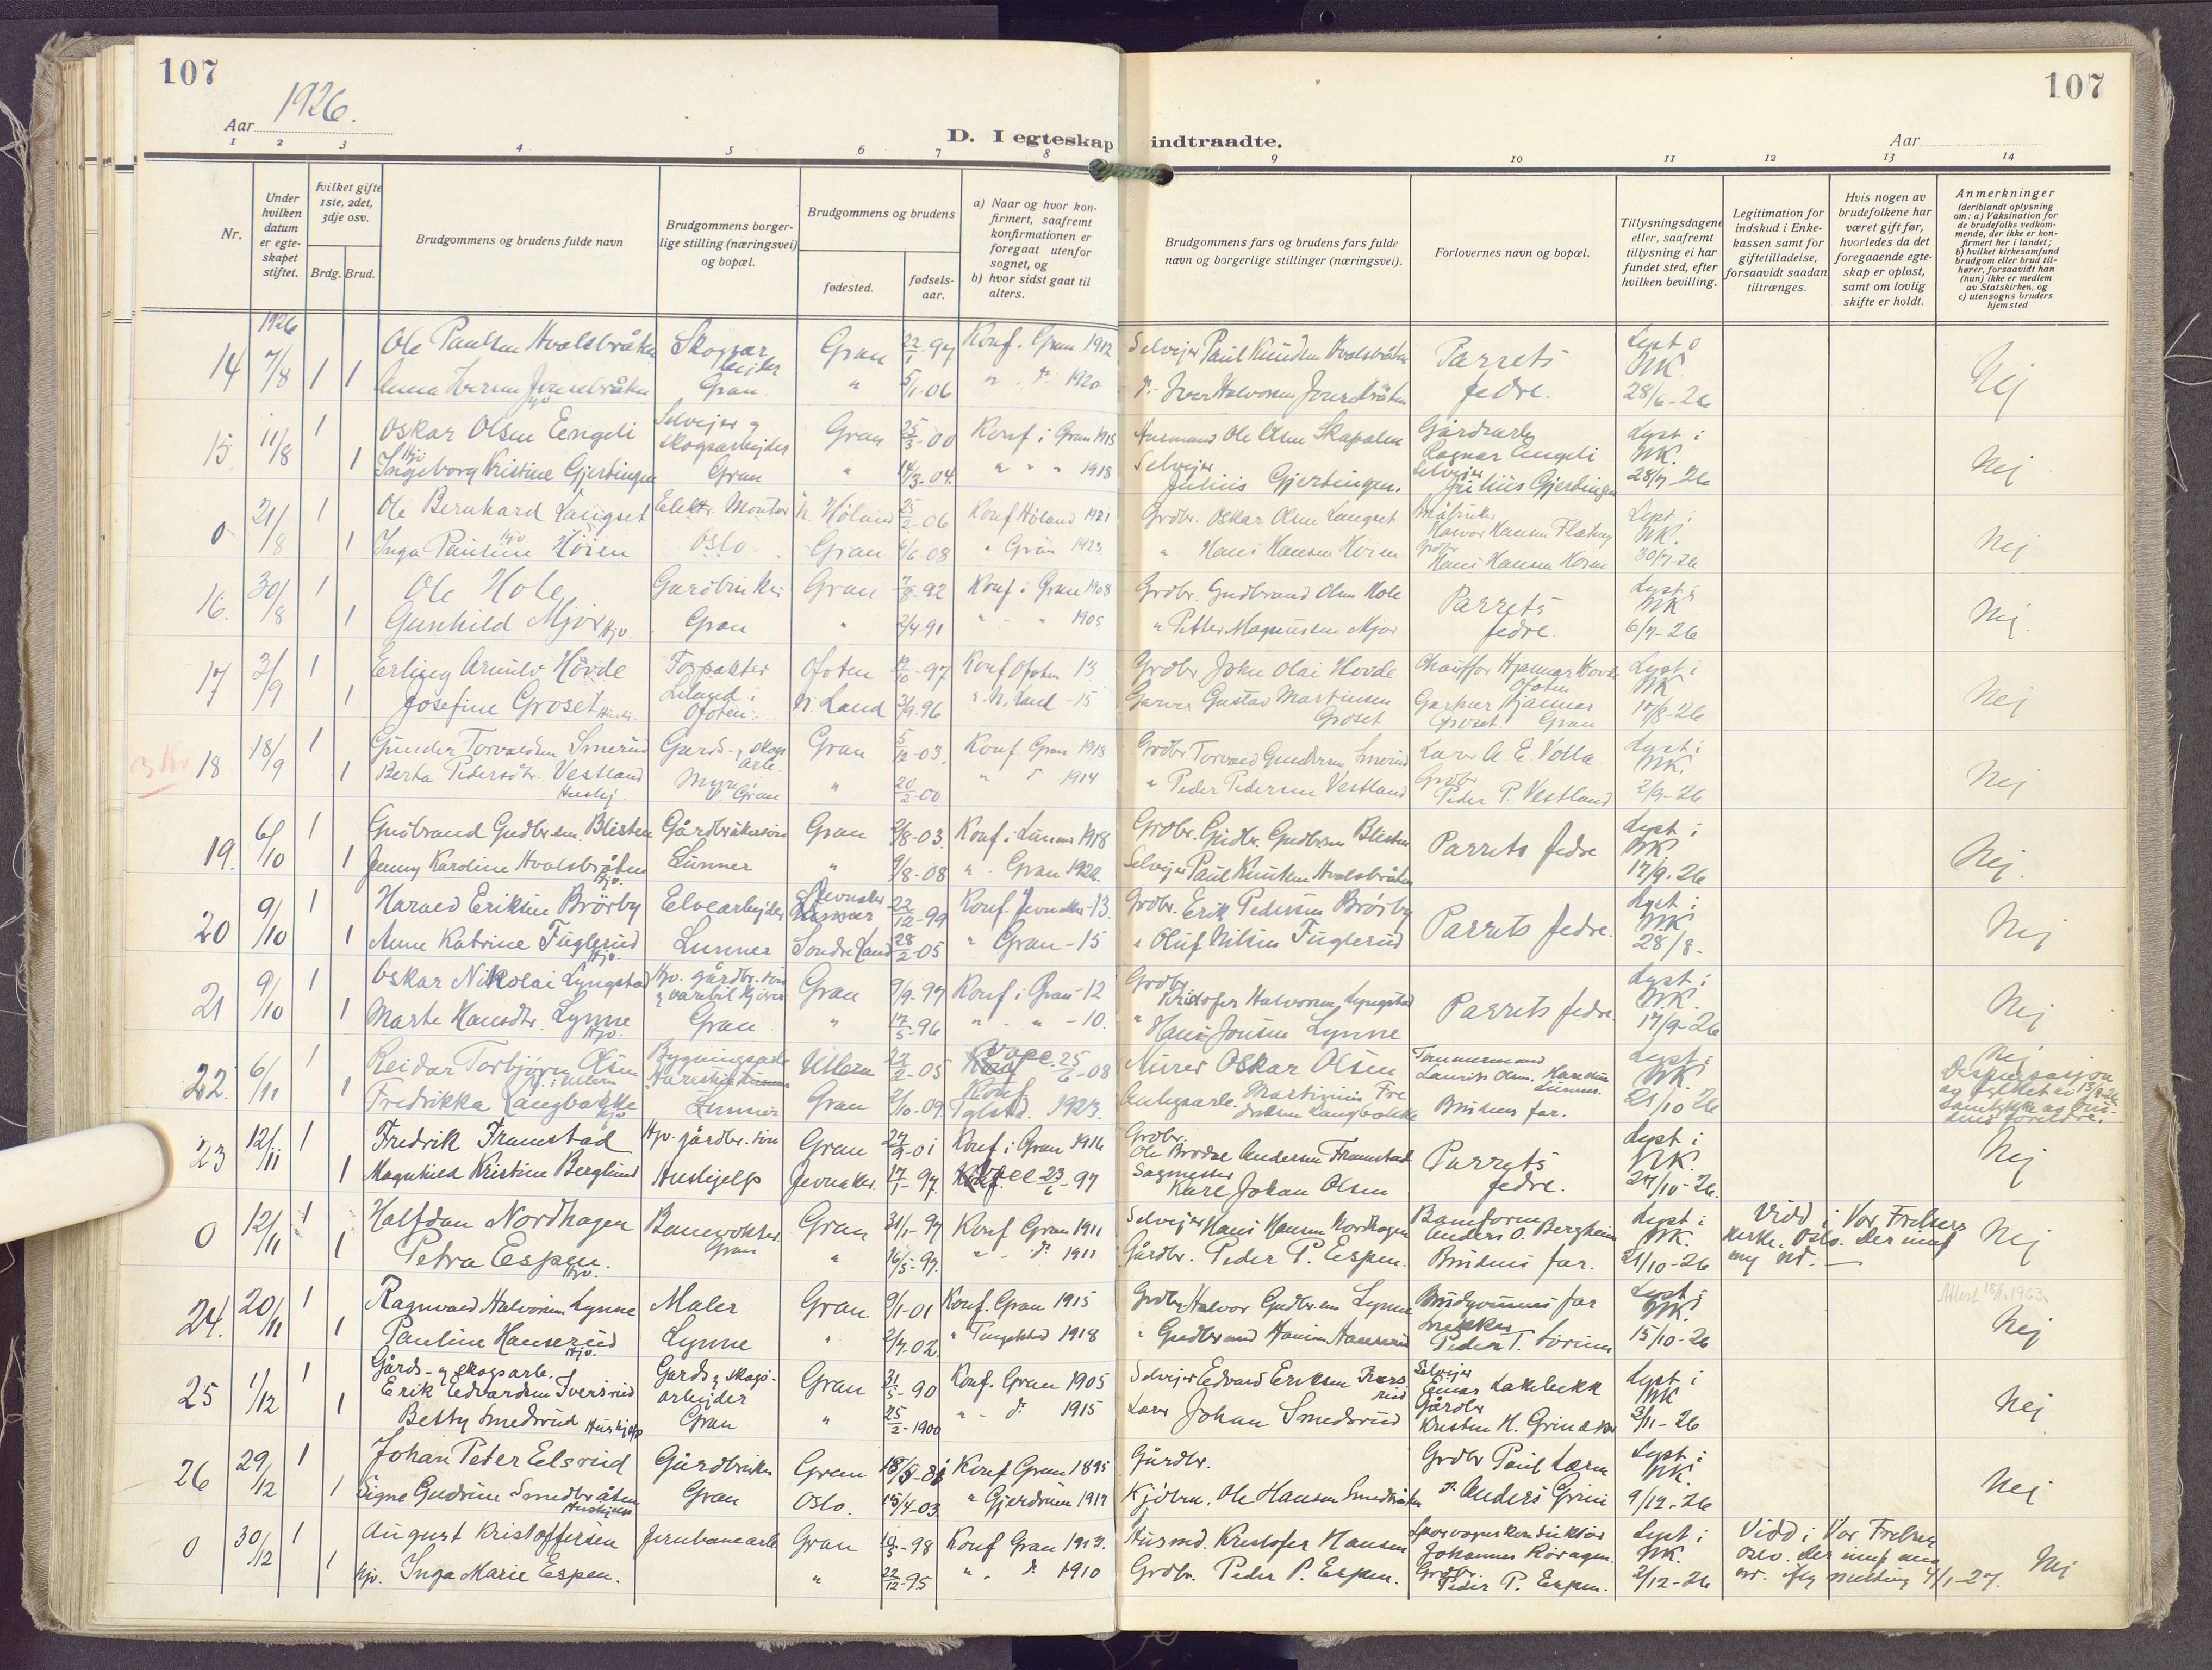 107
107
Aar 1926.
D. I egteskap indtraadte.
Aar
1 2 3 4 5 6 7 8 9 10 11 12 13 14
Nr.
Under hvilken datum er egteskapet stiftet.
Hvilket gifte 1ste, 2det, 3dje osv.
Brdg. Brud.
Brudgommens og brudens fulde navn
Brudgommens borgerlige stilling (næringsvei) og bopæl.
Brudgommens og brudens
fødested.
fødselsaar.
a) Naar og hvor konfirmert, saafremt konfirmationen er foregaat utenfor sognet, og
b) hvor sidst gaat til alters.
Brudgommens fars og brudens fars fulde navn og borgerlige stillinger (næringsvei).
Forlovernes navn og bopæl.
Tillysningsdagene eller, saafremt tilysning ei har fundet sted, efter hvilken bevilling.
Legitimation for indskud i Enkekassen samt for giftetilladelse, forsaavidt saadan tiltrænges.
Hvis nogen av brudefolkene har været gift før, hvorledes da det foregaaende egteskap er opløst, samt om lovlig skifte er holdt.
Anmerkninger
(deriblandt oplysning om: a) Vaksination for de brudefolks vedkommende, der ikke er konfirmert her i landet;
b) hvilket kirkesamfund brudgom eller brud tilhører, forsaavidt han (hun) ikke er medlem av Statskirken, og
c) utensogns bruders hjemsted
1926
14 7/8 1 Ole Paulsen Hvalsbråten Skogsarbeider Gran 22/1-97 Konf. Gran 1912 Selvejer Paul Knudsen Hvalsbråten Parrets fedre. Lyst i NK. 28/6-26 Nej
1 Anna Iversen Jonsbråten Gran " 5/1-06 " d. 1920 d. Iver Halvorsen Jonsbråten
15 11/8 1 Oskar Olsen Engeli Selvejer og skogsarbejder Gran 25/3-00 Konf i Gran 1915 Ole Olsen Skapalen Gårdsarb. Ragnar Engeli Lyst i NK. 28/7-26 Nej
1 Ingeborg Kristine Gjerdingen Hjv Gran " 14/3-04. " " " 1918 Selvejer Julius Gjerdingen. Selvejer Julius Gjerdingen
0 21/8 1 Ole Bernhard Langset Elektr. Montør N. Høland 25/2-06 Konf Høland 1921 Grdbr. Oskar Olsen Langset Halvor Hansen Lyst i NK. 30/7-26 Nej
1 Inga Pauline Høien Hjv Oslo Gran 6/6 08 " Gran 1923. " Hans Hansen Høien Grdbr Hans Hansen Høien
16. 30/8 1 Ole Hole Gardbruker Gran 7/8-92 Konf i Gran 1908 Grdbr. Gudbrand Olsen Hole Parrets fedre. Lyst i NK 6/7-26 Nej.
1 Gunhild Mjør Hjv. Gran " 2/4-91 " - " 1905 " Petter Magnussen Mjør
17 3/9 1 Erling Arnulv Hovde Forpakter Ofoten 12/10-97 Konf Ofoten 13. Grdbr John Olai Hovde Chauffør Hjalmar Hovde Ofoten Lyst i NK 17/8-26 Nej
1 Josefine Groset Liland i Ofoten. N. Land 3/9-96 " N. Land -15 Garver Gustav Martinsen Groset Gartner Hjalmar Groset Gran
18 18/9 1 Gunder Torvaldsen Smerud Gards- og skogsarb. Gran 5/12-03. Konf Gran 1918 Grdbr Torvald Gundersen Smerud Lærer A. E. Volla Lyst i NK. 2/9-26 Nej
1 Berta Pedersdtr. Vestland Hushj. Myre i Gran " 20/2-00 " d 1914 " Peder Pedersen Vestland Grdbr Peder P. Vestland
19. 6/10 1 Gudbrand Gudbr.sen Blisten Gårdbrukersøn Gran 2/8-03. Konf i Lunner 1918 Grdbr. Gudbr. Gudbrsen Blisten Parrets fedre Lyst i NK. 17/9-26 Nej.
1 Jenny Karoline Hvalsbråten Hjv. Lunner " 9/8-08 " Gran 1922. Selvejer Paul Knutsen Hvalsbråten
20 9/10 1 Harald Eriksen Brørby Elvearbejder Jevnaker 22/12-99 Konf. Jevnaker-13. Grdbr. Erik Pedersen Brørby Parrets fedre. Lyst i NK. 28/8- Nej
1 Anne Katrine Fuglerud Hjv. Lunner Søndre Land 28/2-05 " Gran -15 " Oluf Nilsen Fuglerud
21 9/10 1 Oskar Nikolai Lyngstad Hjv. gårdbr. søn og varebilkjører Gran 9/9-97 Konf i Gran -12 Grdbr. Kristofer Halvorsen Lyngstad Parrets fedre Lyst i NK. 17/9-26 Nej
1 Marte Hansdtr. Lynne Hjv. Gran " 17/5-96 " - " -10. " Hans Jonsen Lynne
22. 6/11 1 Reidar Torbjørn Olsen Bygningsarb. Ullern 22/2-05 vacc. 25/6-08 Murer Oskar Olsen Tømmermand Laurits Olsen Lyst i NK. 21/10 26 Nej
1 Fredrikka Langbakke Hjv Lunner Gran 2/10-09. Konf Tglstd. 1923. Anlegsarb. Martinius Fredriksen Langbakke Brudens far.
23 12/11 1 Fredrik Framstad Hjv. gårdbr. søn Gran 27/9-01 Konf i Gran 1916 Grdbr. Ole Brodal Andersen Framstad Parrets fedre. Lyst i NK. 27/10-26. Nej
1 Magnhild Kristine Berglund Hushjelp Jevnaker. 17/1-97. vacc 23/6-97 Sagmester Karl Johan Olsen
0 12/11 1 Halfdan Nordhagen Banevokter Gran Gran 31/1-97 Konf Gran 1911 Selvejer Hans Hansen Nordhagen Baneform. Anders O. Bergheim Lyst i NK. 21/10-26 Vidd i Vor Frelsers kirke. Oslo. Nej
1 Petra Espen. Hjv. " 16/5-97. " - d. 1911 Gårdbr. Peder P. Espen. Brudens far.
24. 20/11 1 Ragnvald Halvorsen Lynne Maler Gran 9/1-01 Konf. Gran 1915 Grdbr Halvor Gudbr.sen Lynne Brudgommens far Lyst i NK. 15/10-26 Nej
1 Pauline Hanserud Hjv. Lynne " 2/7-02. " Tingelstad 1918 " Gudbrand Hansen Hanserud Snekker Peder T. Sorum
25 1/12 1 Gårds- og skogsarb. Erik Edvardsen Iversrud Gards og skogsarbejder Gran 31/5-90 Konf. Gran 1905 Selvejer Edvard Eriksen Selvejer Einar Lakebekk Lyst i NK 3/11-26 Nej
1 Betsy Smedsrud Hushjelp Gran " 25/2-1900 " - d. 1915 Lærer Johan Smedsrud Gårdbr Kristen H. Grinaker
26 29/12 1 Johan Peter Elsrud Gårdbruker Gran Konf Gran 1895 Gårdbr. Grdbr Paul Lærm Lyst i NK. 9/12-26 Nej
1 Signe Gudrun Smedbråten Gran Oslo. 15/4-03. " Gjerdrum 1917 Kjøbm. Ole Hansen Smedbråten d. Anders Grini
0 30/12 1 August Kristoffersen Jernbanearb Gran -98 Konf Gran 1913. Husmd. Kristofer Hansen Sporvognskonduktør Johannes Røragen. Lyst i NK. 2/12-26 Vidd i Vor Frelsers Oslo. Nej
1 Hjv. Inga Marie Espen. " 22/12-95 " . d. 1910 Grdbr. Peder P. Espen. Grdbr. Peder P. Espen.